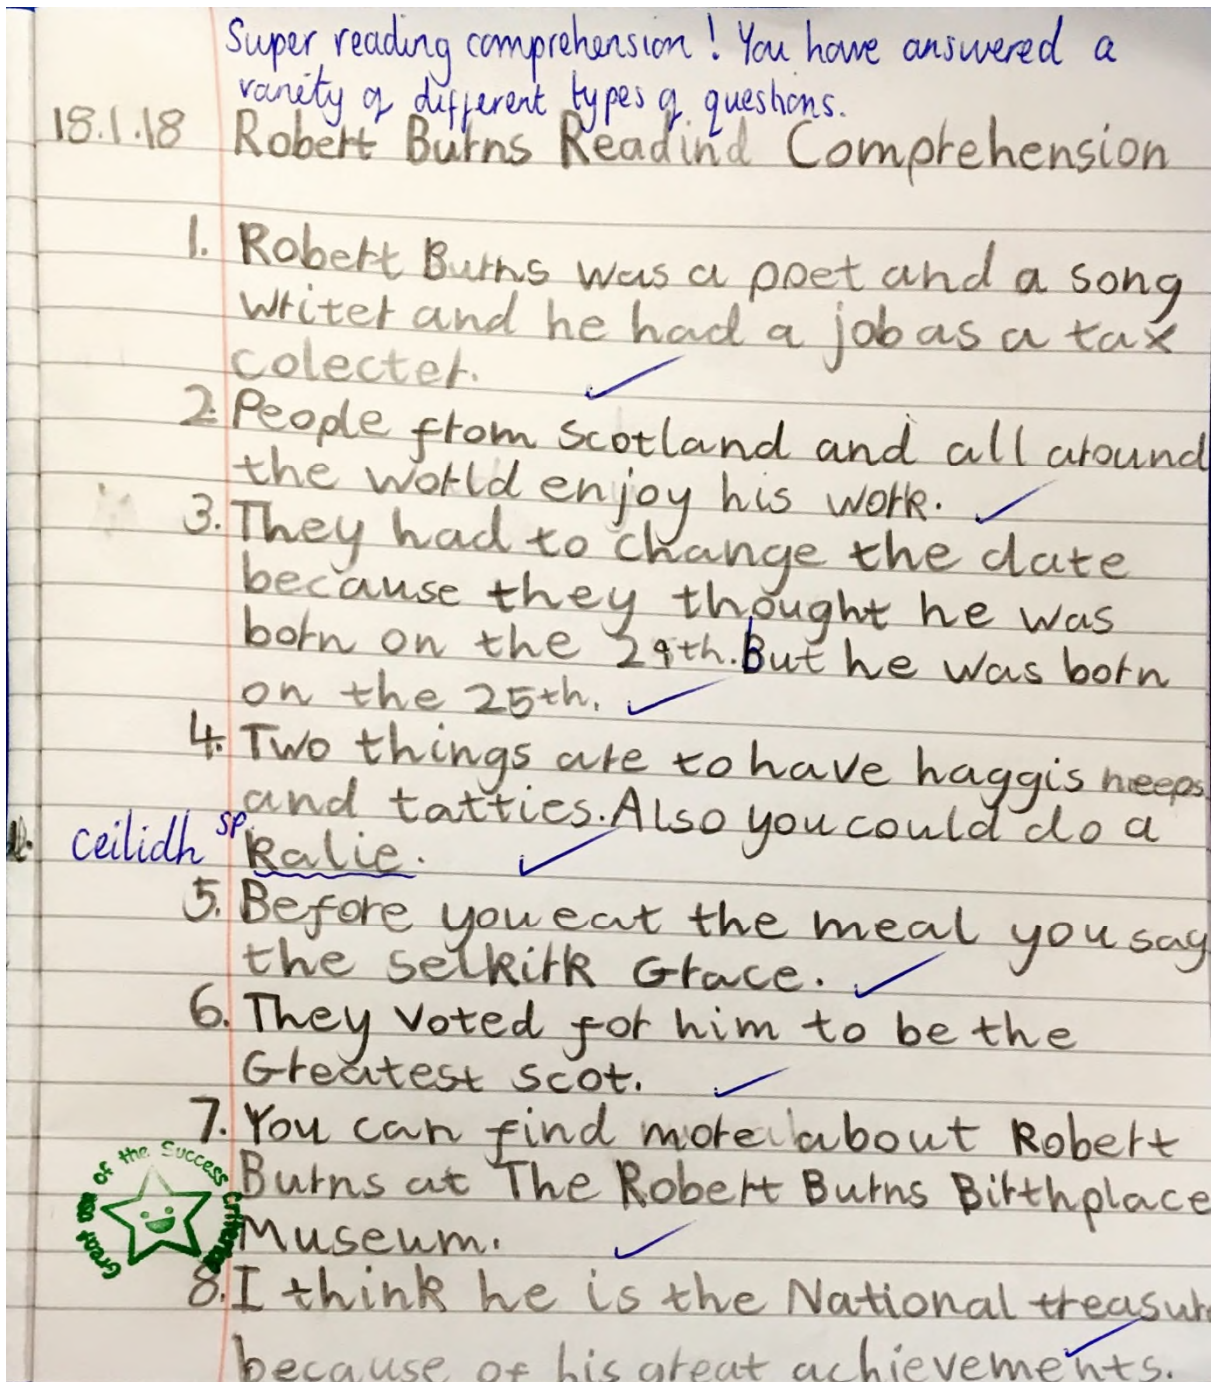 Super reading comprehension! You have answered a
variety of different types of questions.
18.1.18 Robert Burns Readind Comprehension
1. Robert Burns was a poet and a song
writer and he had a job as a tax
colecter.
2. People from scotland and all around
the world enjoy his work.
3. They had to change the date
because they thought he was
born on the 29th. But he was born
on the 25th.
4. Two things are to have haggis neeps
and tatties. Also you could do a
ceilidh sp kalie.
5. Before you eat the meal you say
the selkirk Grace.
6. They voted for him to be the
Greatest scot.
7. You can find more about Robert
Burns at The Robert Burns Birthplace
Museum.
Great use of the Success Criteria
8. I think he is the National treasur
because of his great achievements.